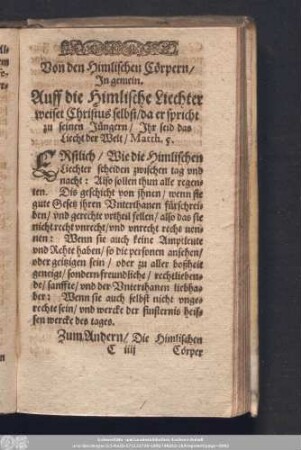 Von den Himlischen Cörpern/
In gemein.
Auff die Himlische Liechter
weiset Christus selbst/ da er spricht
zu seinen Jüngern/ Ihr seid das
Liecht der Welt/ Matth. 5.
ERstlich/ Wie die Himlischen
Liechter scheiden zwischen tag vnd
nacht: Also sollen thun alle regen-
ten. Dis geschicht von jhnen/ wenn sie
gute Gesetz jhren Vnterthanen fürschrei-
ben/ vnd gerechte vrtheil fellen/ also das sie
nicht recht vnrecht/ vnd vnrecht rechs nen-
nen: Wenn sie auch keine Amptleute
vnd Rehte haben/ so die personen ansehen/
oder geitzigen sein/ oder zu aller boßheit
geneigt/ sondern freundliche/ rechtlieben-
de/ sanffte/ vnd der Vnterthanen liebha-
ber: Wenn sie auch selbst nicht vnge-
rechte sein/ vnd wercke der finsternis heis-
sen wercke des tages.
Zum Andern/ Die Himlischen
C iiij Cörper